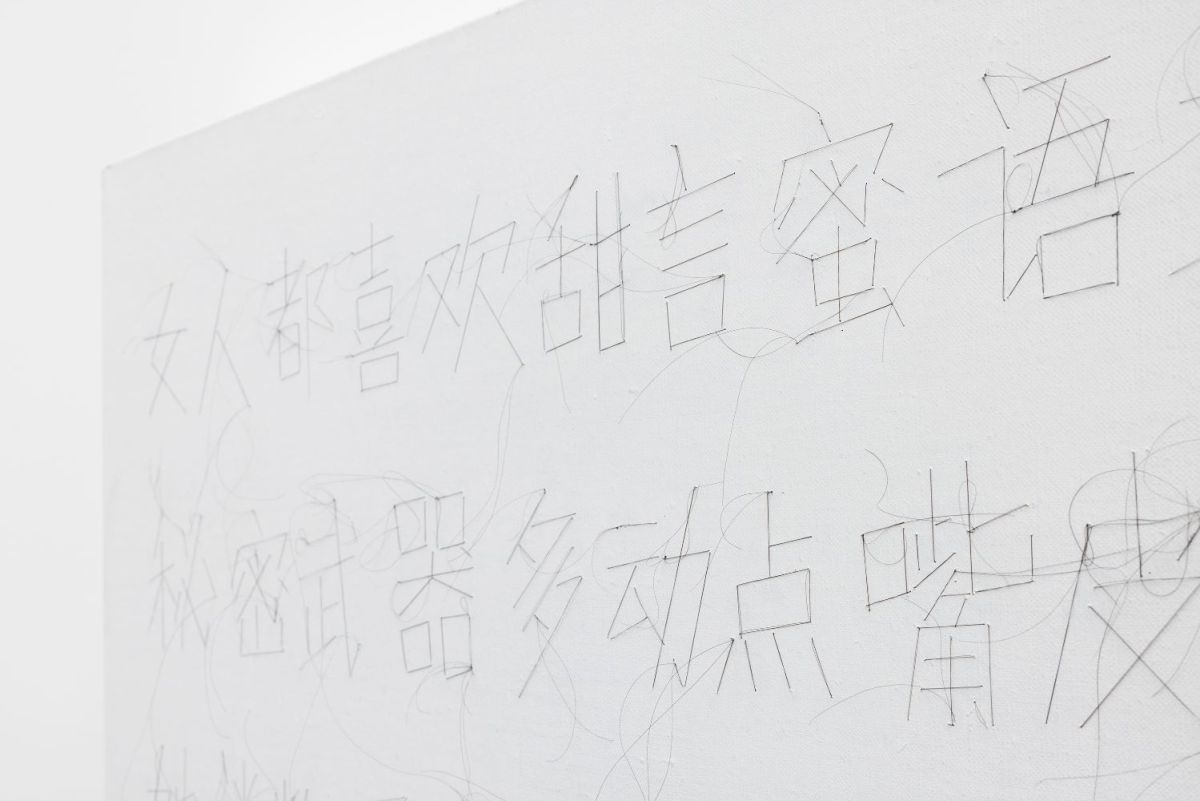 女人都喜欢甜言蜜语
秘密武器多动点嘴皮